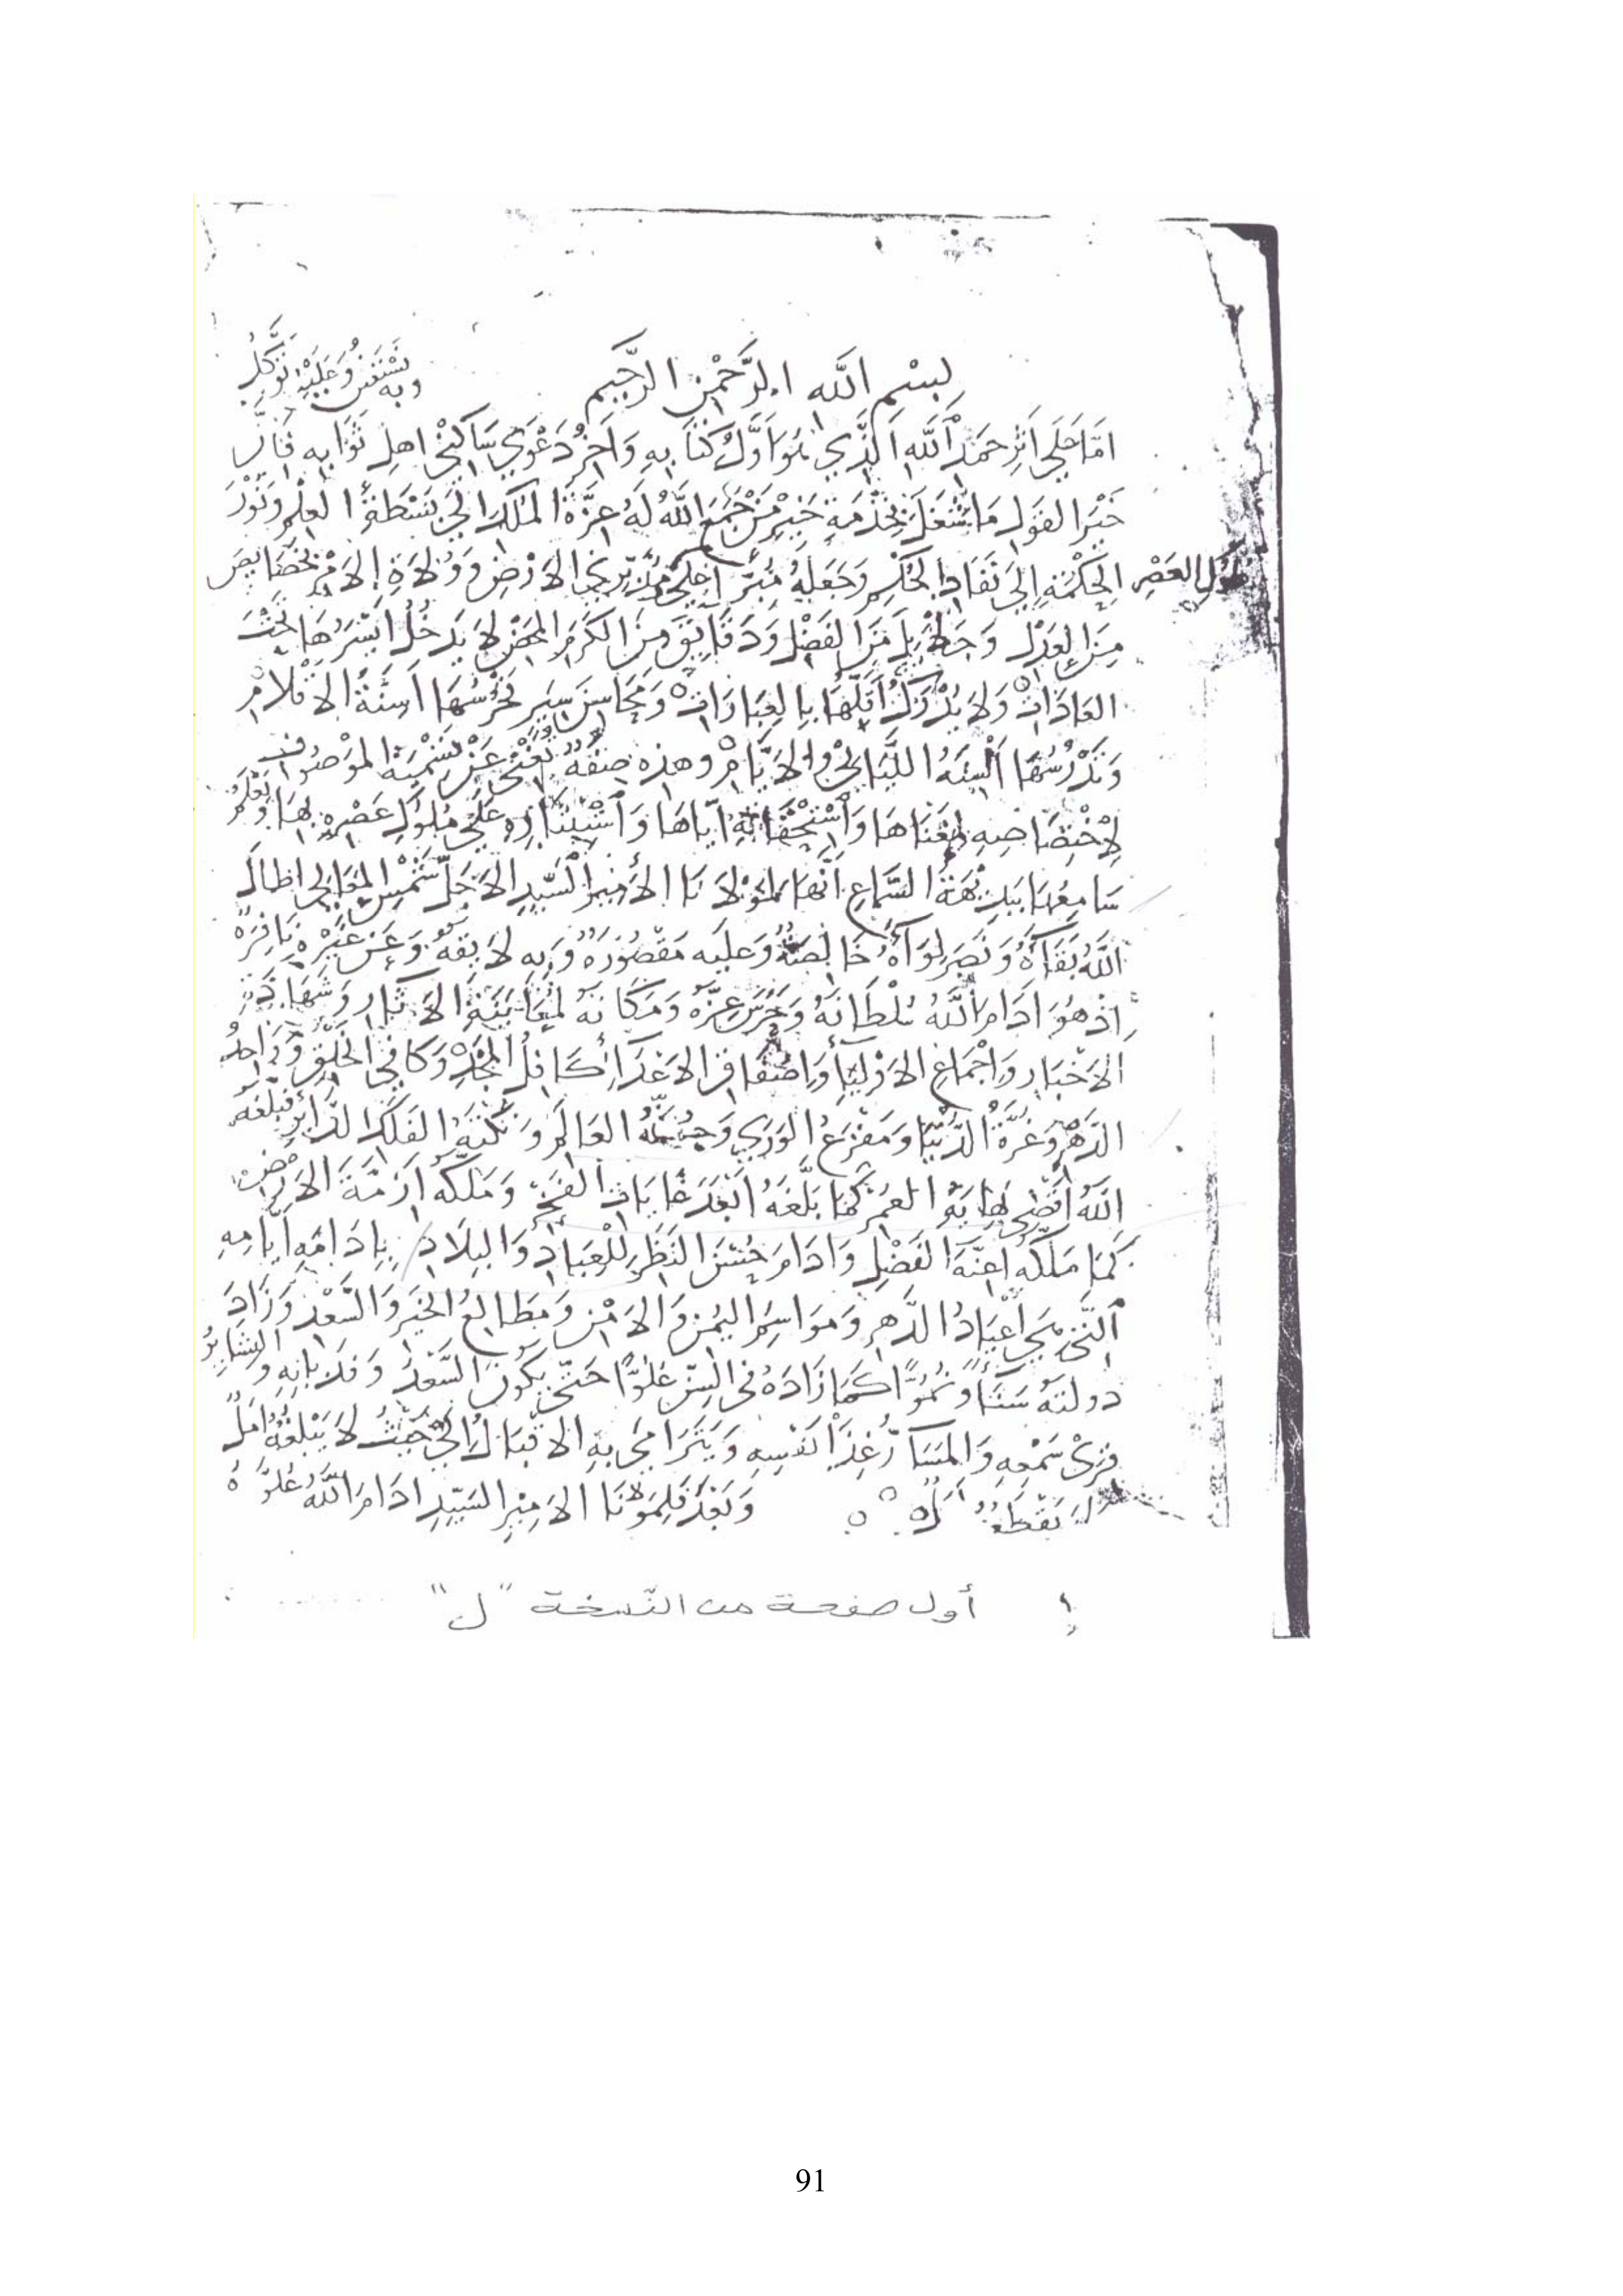 بِسْمِ اللَّه الرَّحْمٰنِ الرَّحِيم
وبه نَسْتَعِينُ وَعَلَيْهِ نَتَوَكَّلُ
امّا عَلَى أَثَرِ حَمْدِ اللَّهِ الَّذِي هُوَ أَوَّلُ كتابِهِ وَآخِرُ دَعْوَى سَاكِنِي اهلِ ثَوَابِه فَانَّ
خَيْرَ القولِ مَا شُغِلَ بِخِدْمَةِ خَيْرِ مَنْ جَمَعَ اللَّهُ لَهُ عِزَّةَ المُلْكِ الَى بَسْطَةِ العِلْمِ وَنُورَ
الحِكْمَةِ إِلَى نَفَاذِ الحُكْمِ وَجَعَلَهُ مُبَرَّزًا عَلَى مُلُوكِ العَصْرِ وَمُدَبِّرِي الارْضِ وَوُلاةِ الامْرِ بخَصَايِصَ
مِنَ العَدْلِ وَجَلايِلَ مِنَ الفَضْلِ وَدَقَايِقَ مِنَ الكَرَمِ المَحْضِ لا يَدخُلُ ايْسَرُهَا تَحْتَ
العَادَاتِ وَلا يُدْرَكُ أَقَلُّهَا بِالعِبَارَاتِ وَمَحَاسِنِ سِيَرٍ تَحْرُسُهَا اَسِنَّةُ الاَقْلامِ
وَتَدْرُسُهَا أَلْسِنَةُ اللَّيَالِي وَالايّامِ وهذه صِفَةٌ تُغْنِي عَنْ تَسْمِيَةِ المَوْصُوفِ
لاخْتِصَاصِهِ بِمَعْنَاهَا وَاسْتِحْقَاقِهِ ايّاهَا وَاسْتِيثَارِهِ عَلَى مُلُوكِ عَصْرِهِ بهَا وَيَعْلَمُ
سَامِعُهَا بِبَدِيهَةِ السَّمَاعِ أَنَّهَا لِمَوْلانَا الأَمِيرِ السَّيِّدِ الاَجَلِّ شَمْسِ المَعَالِي اطَالَ
اللَّهُ بَقَآءَهُ وَنَصَرَ لِوَآءَهُ خَالِصَةٌ وَعَلَيه مَقْصُورَةٌ وَبِهِ لايِقَةٌ وَعَنْ غَيْرِهِ نَافِرَةٌ
اِذْ هُوَ ادَامَ اللَّهُ سُلْطَانَهُ وَحَرَسَ عِزَّهُ وَمَكَانَهُ لِمُعَايَنَةِ الاَثَارِ وَشَهَادَةِ
الاَخْبَارِ وَاِجْمَاعِ الاَوْلِيَآءِ وَاِصْفَاقِ الاَعْدَآءِ كَافِلُ المَجْدِ وَكَافِي الخَلْقِ وَوَاحِدُ
الدَهْرِ وَغُرَّةُ الدُّنْيَا وَمَفْزَعُ الوَرَى وَحَسَنَةُ العَالَمِ وَنُكْتَةُ الفَلَكِ الدَّايِرِ فَبَلَّغَهُ
اللَّهُ أَقْصَى نِهَايَةِ العُمْرِ كَمَا بَلَّغَهُ اَبْعَدَ غَايَاتِ الفَخْرِ وَمَلَّكَهُ ازِمَّةَ الارْضِ
كَمَا مَلَّكَهُ اعِنَّةَ الفَضْلِ وَادَامَ حُسْنَ النَّظَرِ لِلعِبَادِ وَالبِلادِ بِادَامَةِ أيّامِهِ
الَّتِي هِيَ أَعْيَادُ الدَّهرِ وَمَوَاسِمُ اليُمْنِ وَالامْنِ وَمَطَالِعُ الخَيْرِ وَالسَّعْدِ وَزَادَ
دولتَهُ شَبَابًا وَنُمُوًّا كَمَا زَادَهُ فِي السِّنِّ عُلُوًّا حَتَّى يكُونَ السَّعْدُ وَفدَ بابِهِ وَالبَشَايِرُ
قِرَى سَمْعِهِ وَالمَسَارُّ غِذَاءَ نَفْسِهِ وَيَتَرَامَى بِهِ الاقْبَالُ إلَى حَيْثُ لا يَبْلُغُهُ اَمَلٌ
وَلا يَقْطَعُهُ أَجَلٌ وَبَعْدُ فَلِمَولانَا الامِيرِ السَيِّدِ ادَامَ اللَّهُ عُلُوَّهُ
أول صفحة من النسخة "ل"
91